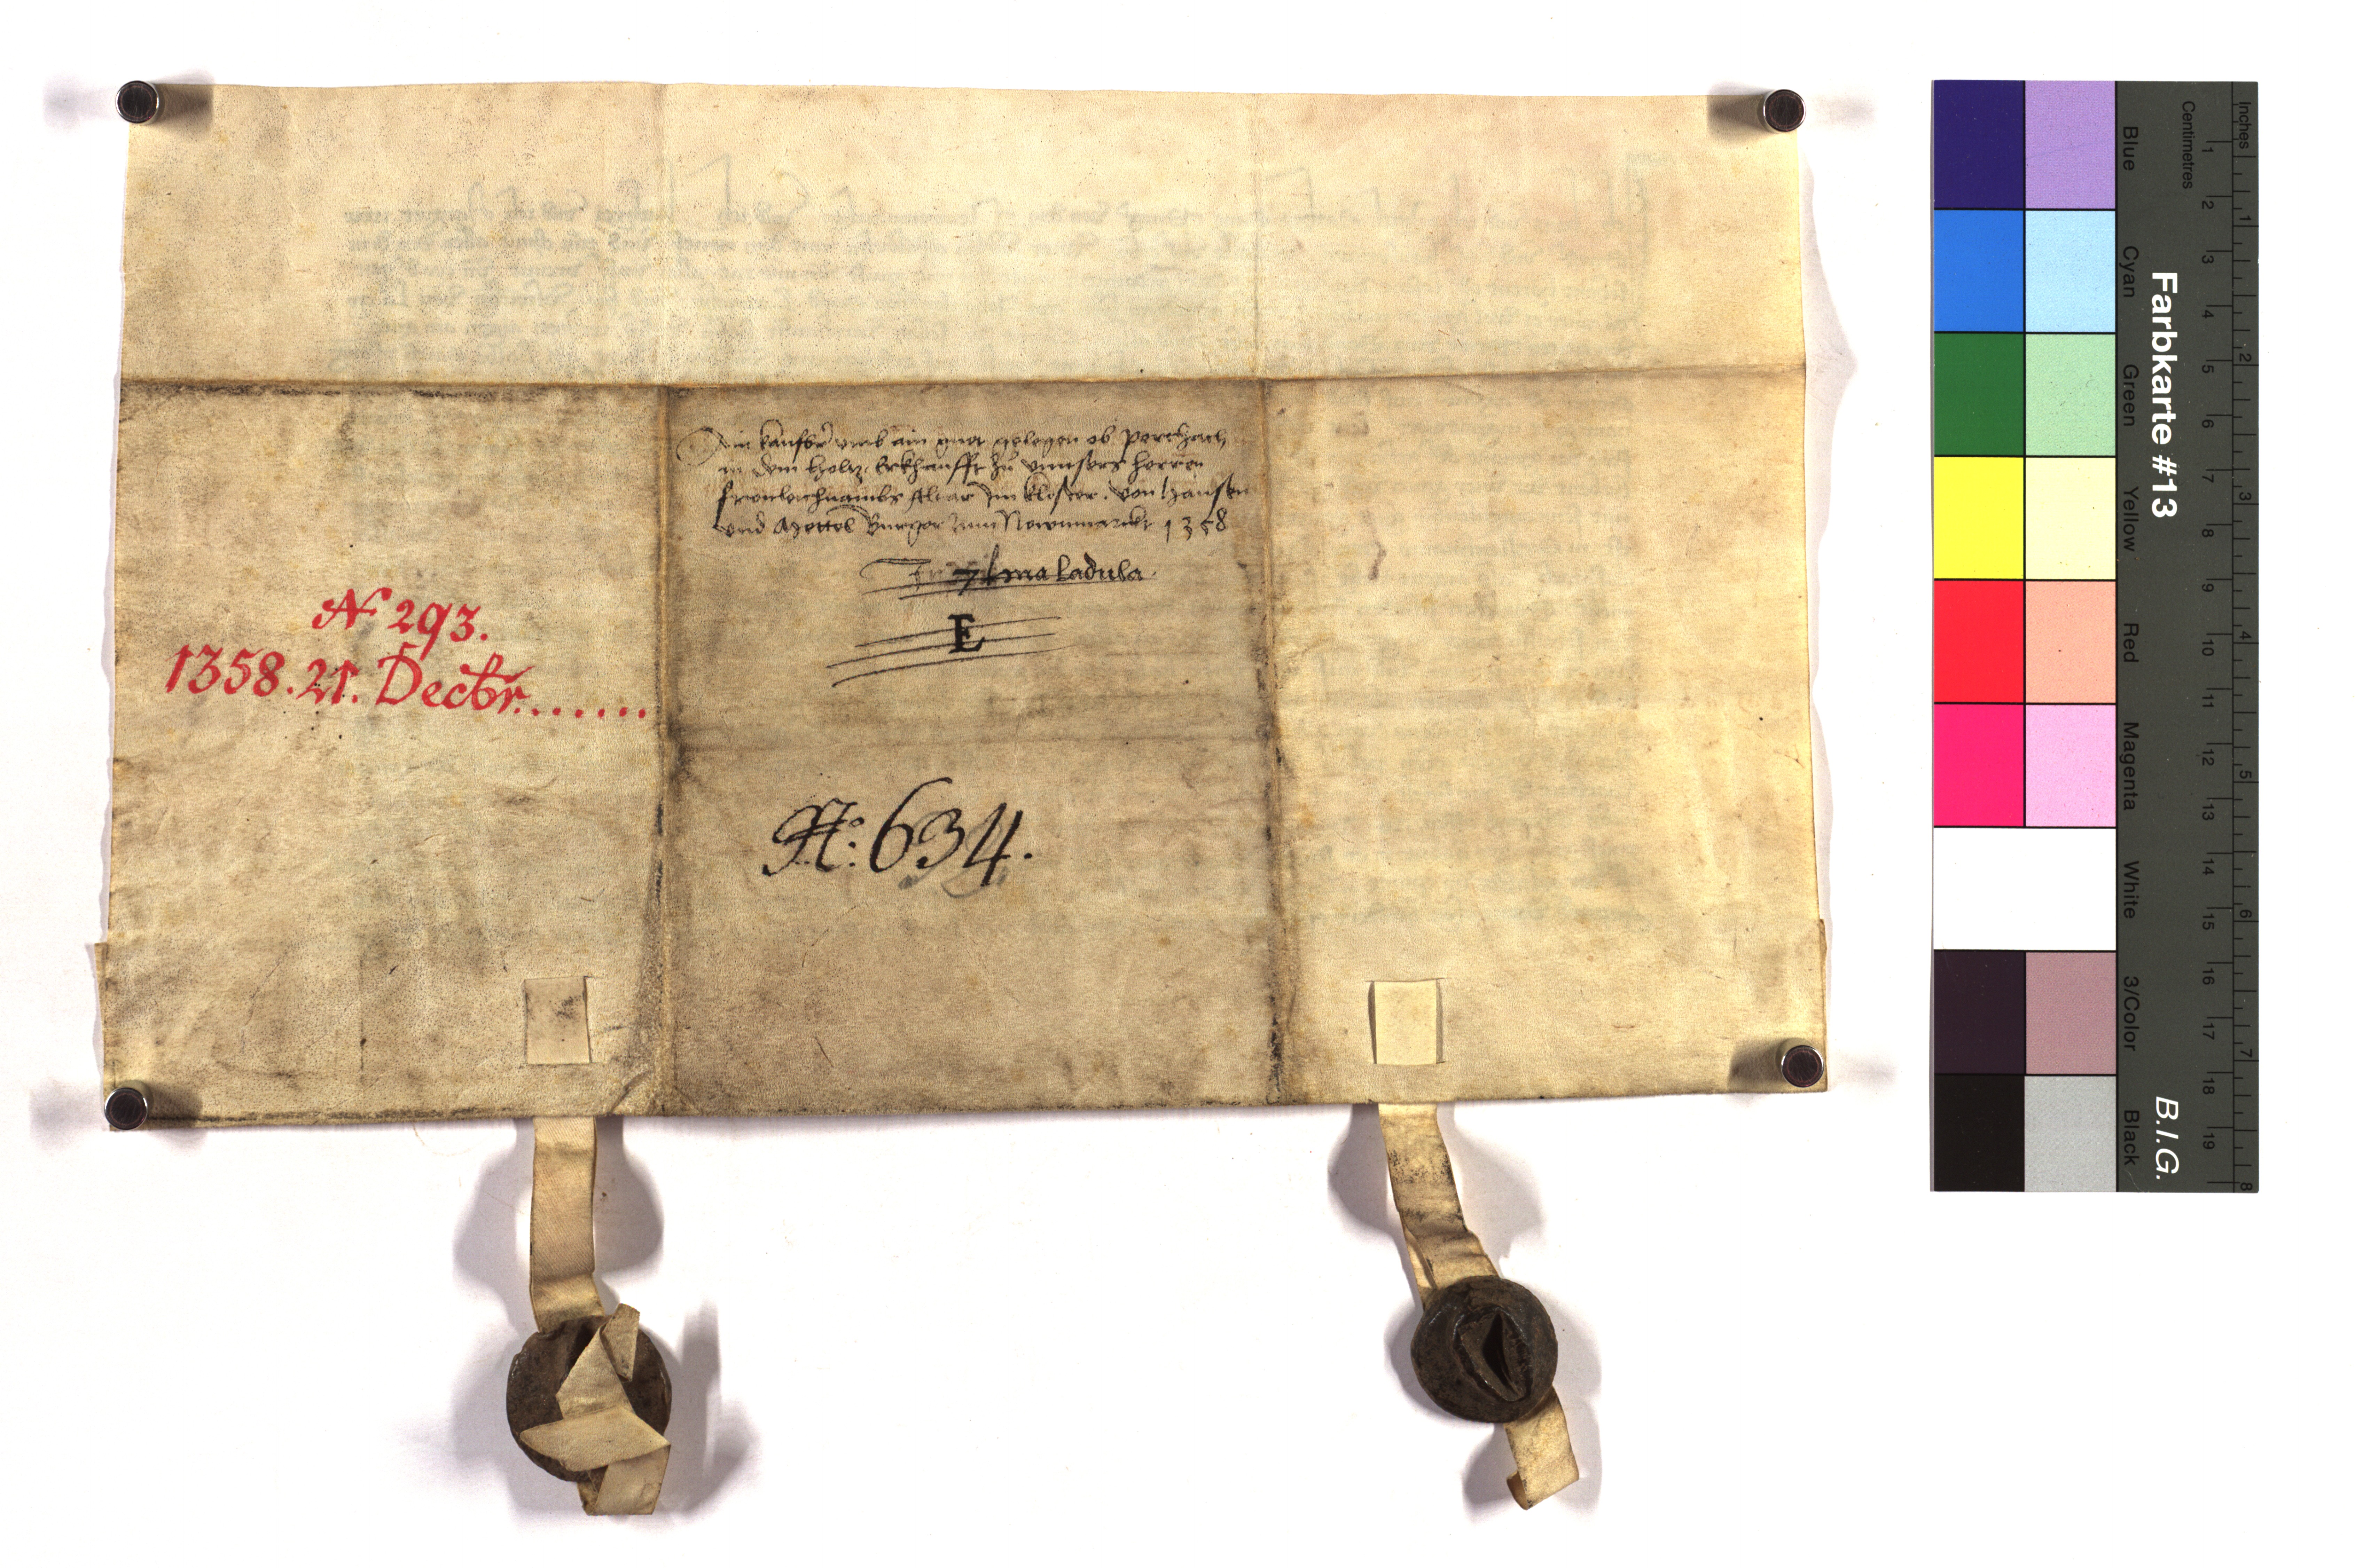 Ain kaufbr̃ umb ain guet gelegen ob Pertzach
in dem Holtz. Erkhaufft zů unnsers herren
fronleichnambs Altar Im kloster. von Hannsen
und Mettel Burger zum Newnmarckt 1358
ma ladula.
E
N 293.
1358. 21. Decbr.......
No: 634.
Farbkarte #13
B.I.G.
Blue
Cyan
Green
Yellow
Red
Magenta
White
3/Color
Black
Centimetres
1 2 3 4 5 6 7 8 9 10 11 12 13 14 15 16 17 18 19
Inches
1 2 3 4 5 6 7 8